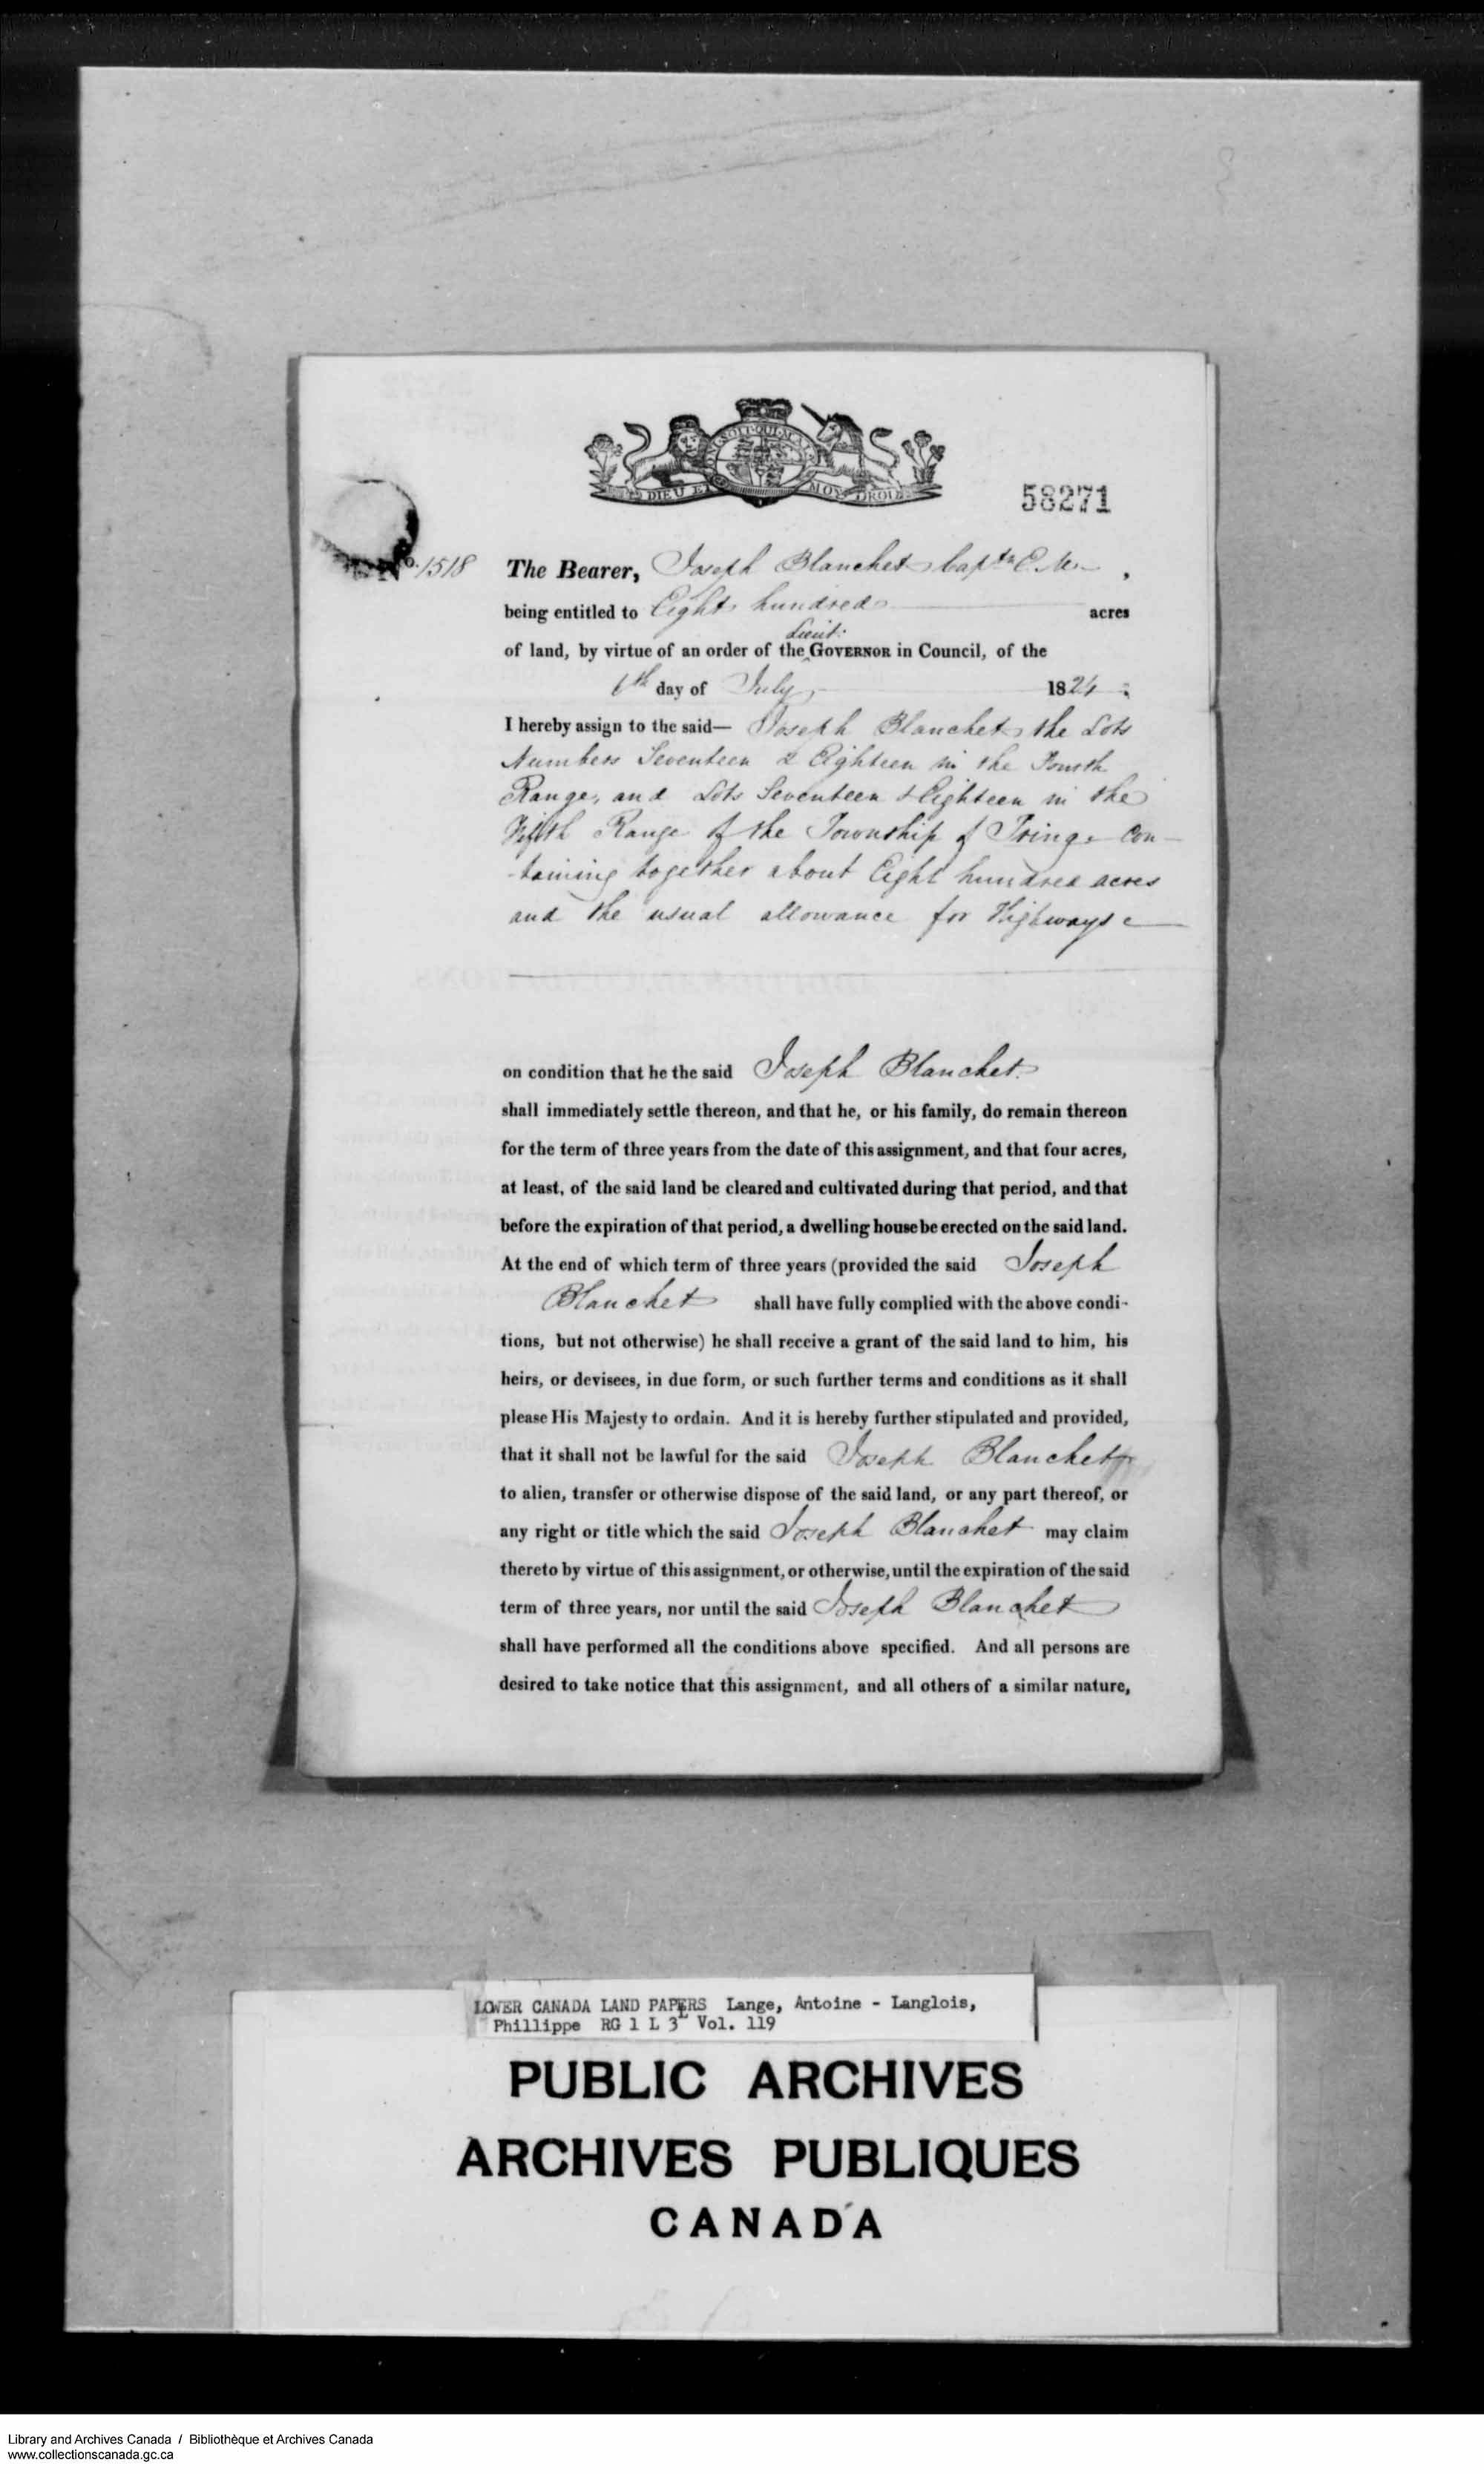 SOIT QUI MAL
DIEU ET MON DROIT
58271
No. 1518 The Bearer, Joseph Blanchet Captn E. M. ,
being entitled to Eight hundred acres
Lieut:
of land, by virtue of an order of the GOVERNOR in Council, of the
6th day of July 1824 ;
I hereby assign to the said— Joseph Blanchet the Lots
Numbers Seventeen & Eighteen in the Fourth
Range, and Lots Seventeen & Eighteen in the
Fifth Range of the Township of Tring con-
-taining together about Eight hundred acres
and the usual allowance for Highways
on condition that he the said Joseph Blanchet
shall immediately settle thereon, and that he, or his family, do remain thereon
for the term of three years from the date of this assignment, and that four acres,
at least, of the said land be cleared and cultivated during that period, and that
before the expiration of that period, a dwelling house be erected on the said land.
At the end of which term of three years (provided the said Joseph
Blanchet shall have fully complied with the above condi-
tions, but not otherwise) he shall receive a grant of the said land to him, his
heirs, or devisees, in due form, or such further terms and conditions as it shall
please His Majesty to ordain. And it is hereby further stipulated and provided,
that it shall not be lawful for the said Joseph Blanchet
to alien, transfer or otherwise dispose of the said land, or any part thereof, or
any right or title which the said Joseph Blanchet may claim
thereto by virtue of this assignment, or otherwise, until the expiration of the said
term of three years, nor until the said Joseph Blanchet
shall have performed all the conditions above specified. And all persons are
desired to take notice that this assignment, and all others of a similar nature,
LOWER CANADA LAND PAPERS Lange, Antoine - Langlois,
Phillippe RG 1 L 3L Vol. 119
PUBLIC ARCHIVES
ARCHIVES PUBLIQUES
CANADA
Library and Archives Canada / Bibliothèque et Archives Canada
www.collectionscanada.gc.ca